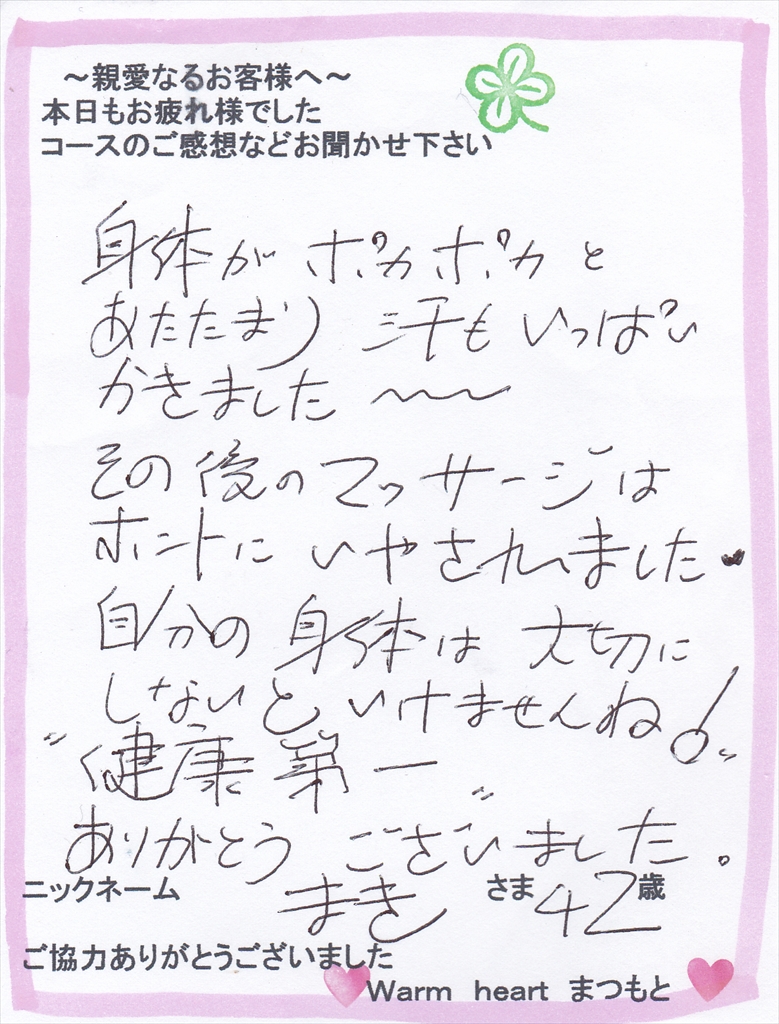 ～親愛なるお客様へ～
本日もお疲れ様でした
コースのご感想などお聞かせ下さい
身体が ポカポカと
あたたまり 汗もいっぱい
かきました 〜〜
その後のマッサージは
ホントに いやされました♥
自分の 身体は 大切に
しないと いけませんね!
"健康第一"
ありがとう ございました。
ニックネーム まき さま 42歳
ご協力ありがとうございました
Warm heart まつもと